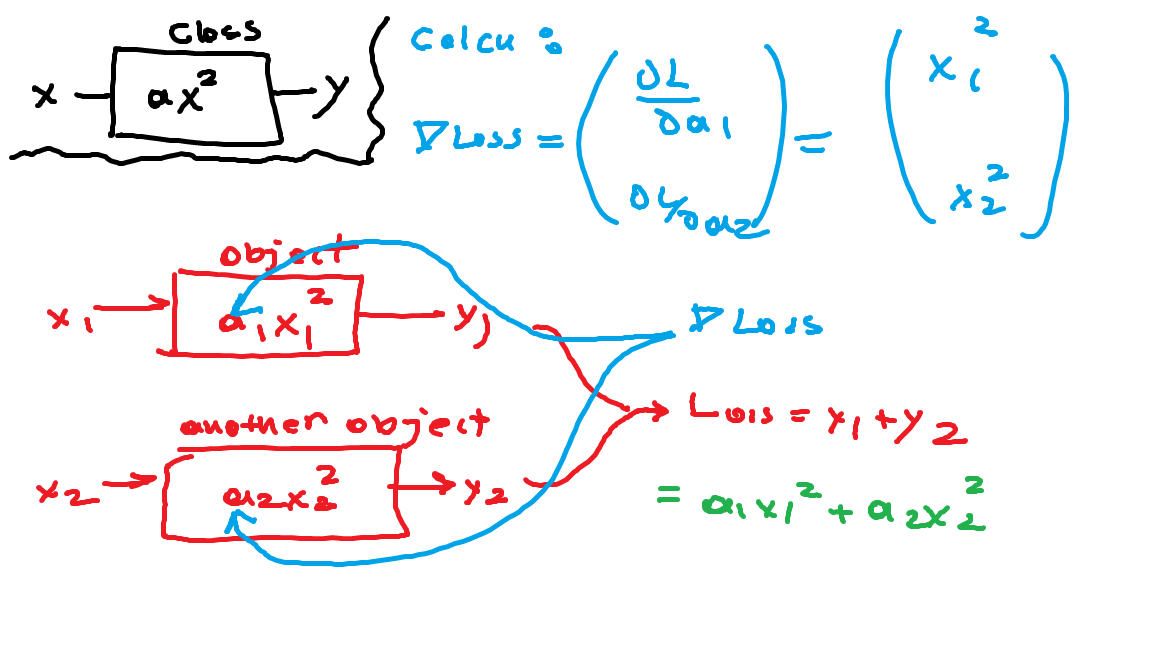 Class
x ax² y
Calcu :
∇ Loss = ( ∂L/∂a₁ ∂L/∂a₂ ) = ( x₁² x₂² )
object
x₁ a₁x₁² y₁
∇ Loss
another object
x₂ a₂x₂² y₂
Loss = y₁ + y₂
= a₁x₁² + a₂x₂²